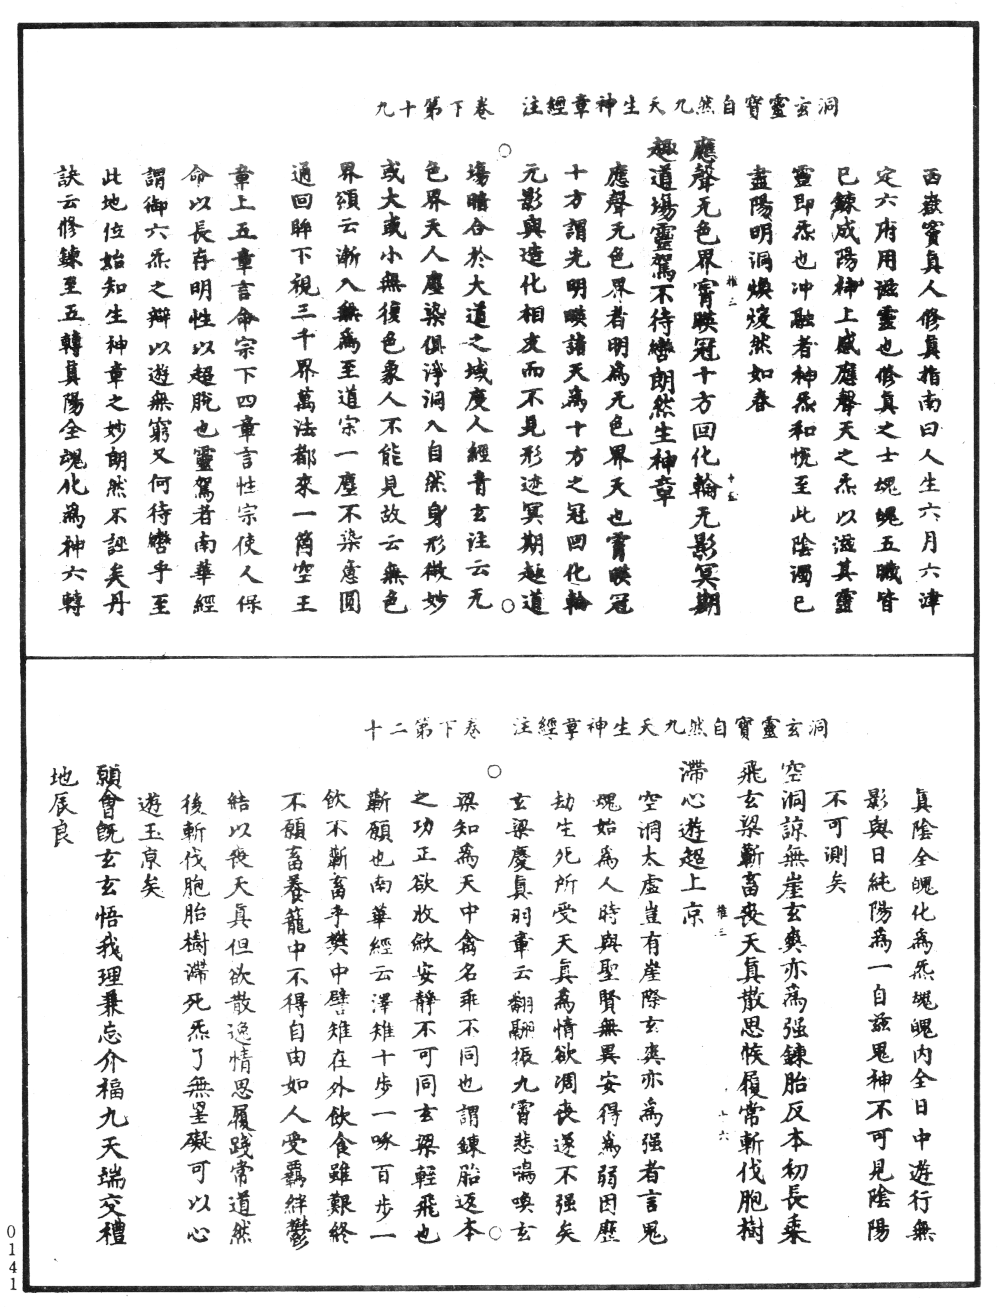 洞玄靈寶自然九天生神章經注　卷下第十九
西嶽竇真人修真指南曰人生六月六津
定六府用滋靈也修真之士魂魄五臟皆
已鍊成陽神上感應聲天之炁以滋其靈
靈即炁也冲融者神炁和悅至此陰濁已
盡陽明洞煥煖然如春
應聲无色界霄暎冠十方回化輪无影冥期
趣道場靈駕不待轡朗然生神章
應聲无色界者明為无色界天也霄暎冠
十方謂光明暎諸天為十方之冠回化輪
元影與造化相友而不見形迹冥期趣道
場暗合於大道之域度人經音玄注云无
色界天人塵染俱淨洞入自然身形微妙
或大或小無復色象人不能見故云無色
界頌云漸入無為至道宗一塵不染意圓
通回眸下視三千界萬法都來一箇空王
章上五章言命宗下四章言性宗使人保
命以長存明性以超脫也靈駕者南華經
謂御六炁之辯以遊無窮又何待轡乎至
此地位始知生神章之妙朗然不誣矣丹
訣云修鍊至五轉真陽全魂化為神六轉
洞玄靈寶自然九天生神章經注　卷下第二十
真陰全魄化為炁魂魄內全日中遊行無
影與日純陽為一自茲鬼神不可見陰陽
不可測矣
空洞諒無崖玄爽亦為强鍊胎反本初長乘
飛玄梁蘄畜喪天真散思候履常斬伐胞樹
滯心遊超上京
空洞太虛豈有崖際玄爽亦為强者言鬼
魂始為人時與聖賢無異安得為弱因歷
劫生死所受天真為情欲凋喪遂不强矣
玄梁慶真羽章云翩翩振九霄悲鳴喚玄
梁知為天中禽名乖不同也謂鍊胎返本
之功正欲收歛安靜不可同玄梁輕飛也
蘄願也南華經云澤雉十步一啄百步一
飲不蘄畜乎樊中譬雉在外飲食雖艱終
不願畜養籠中不得自由如人受羈絆鬱
結以喪天真但欲散逸情思履踐常道然
後斬伐胞胎樹滯死炁了無罣礙可以心
遊玉京矣
願會既玄玄悟我理兼忘介福九天端交禮
地辰良
0141